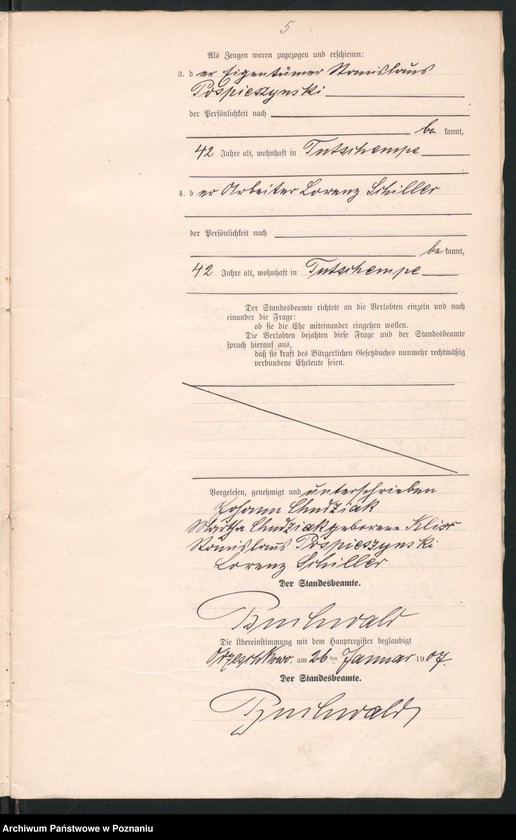 5
Als Zeugen waren zugezogen und erschienen:
3. der Eigentümer Stanislaus
Pospieszynski
der Persönlichkeit nach
be kannt,
42 Jahre alt, wohnhaft in Tutschempe
4. der Arbeiter Lorenz Schiller
der Persönlichkeit nach
be kannt,
42 Jahre alt, wohnhaft in Tutschempe
Der Standesbeamte richtete an die Verlobten einzeln und nach
einander die Frage:
ob sie die Ehe miteinander eingehen wollen.
Die Verlobten bejahten diese Frage und der Standesbeamte
sprach hierauf aus,
daß sie kraft des Bürgerlichen Gesetzbuches nunmehr rechtmäßig
verbundene Eheleute seien.
Vorgelesen, genehmigt und unterschrieben
Johann Chudziak
Martha Chudziak geborene
Stanislaus Pospieszynski
Lorenz Schiller
Der Standesbeamte.
Die Übereinstimmung mit dem Hauptregister beglaubigt
am 26 ten Januar 1907.
Der Standesbeamte.
Archiwum Państwowe w Poznaniu